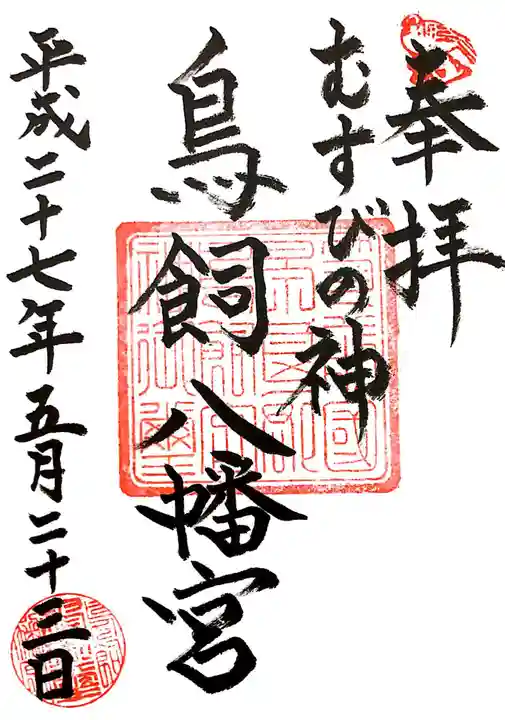 奉拝
むすびの神
鳥飼八幡宮
平成二十七年五月二十三日